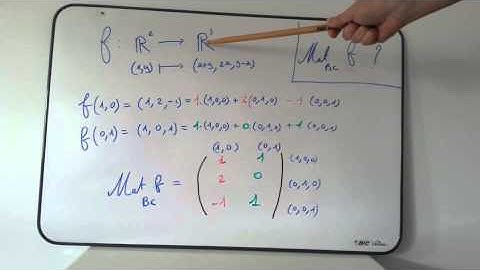 f : ℝ² ⟶ ℝ³
(x,y) ⟼ (x+y, 2x, y-x)
Mat f ?
BC
f(1,0) = (1,2,-1) = 1·(1,0,0) + 2(0,1,0) - 1 (0,0,1)
f(0,1) = (1,0,1) = 1·(1,0,0) + 0(0,1,0) + 1 (0,0,1)
(1,0) (0,1)
1 1 (1,0,0)
Mat f = 2 0 (0,1,0)
BC
-1 1 (0,0,1)
BIC